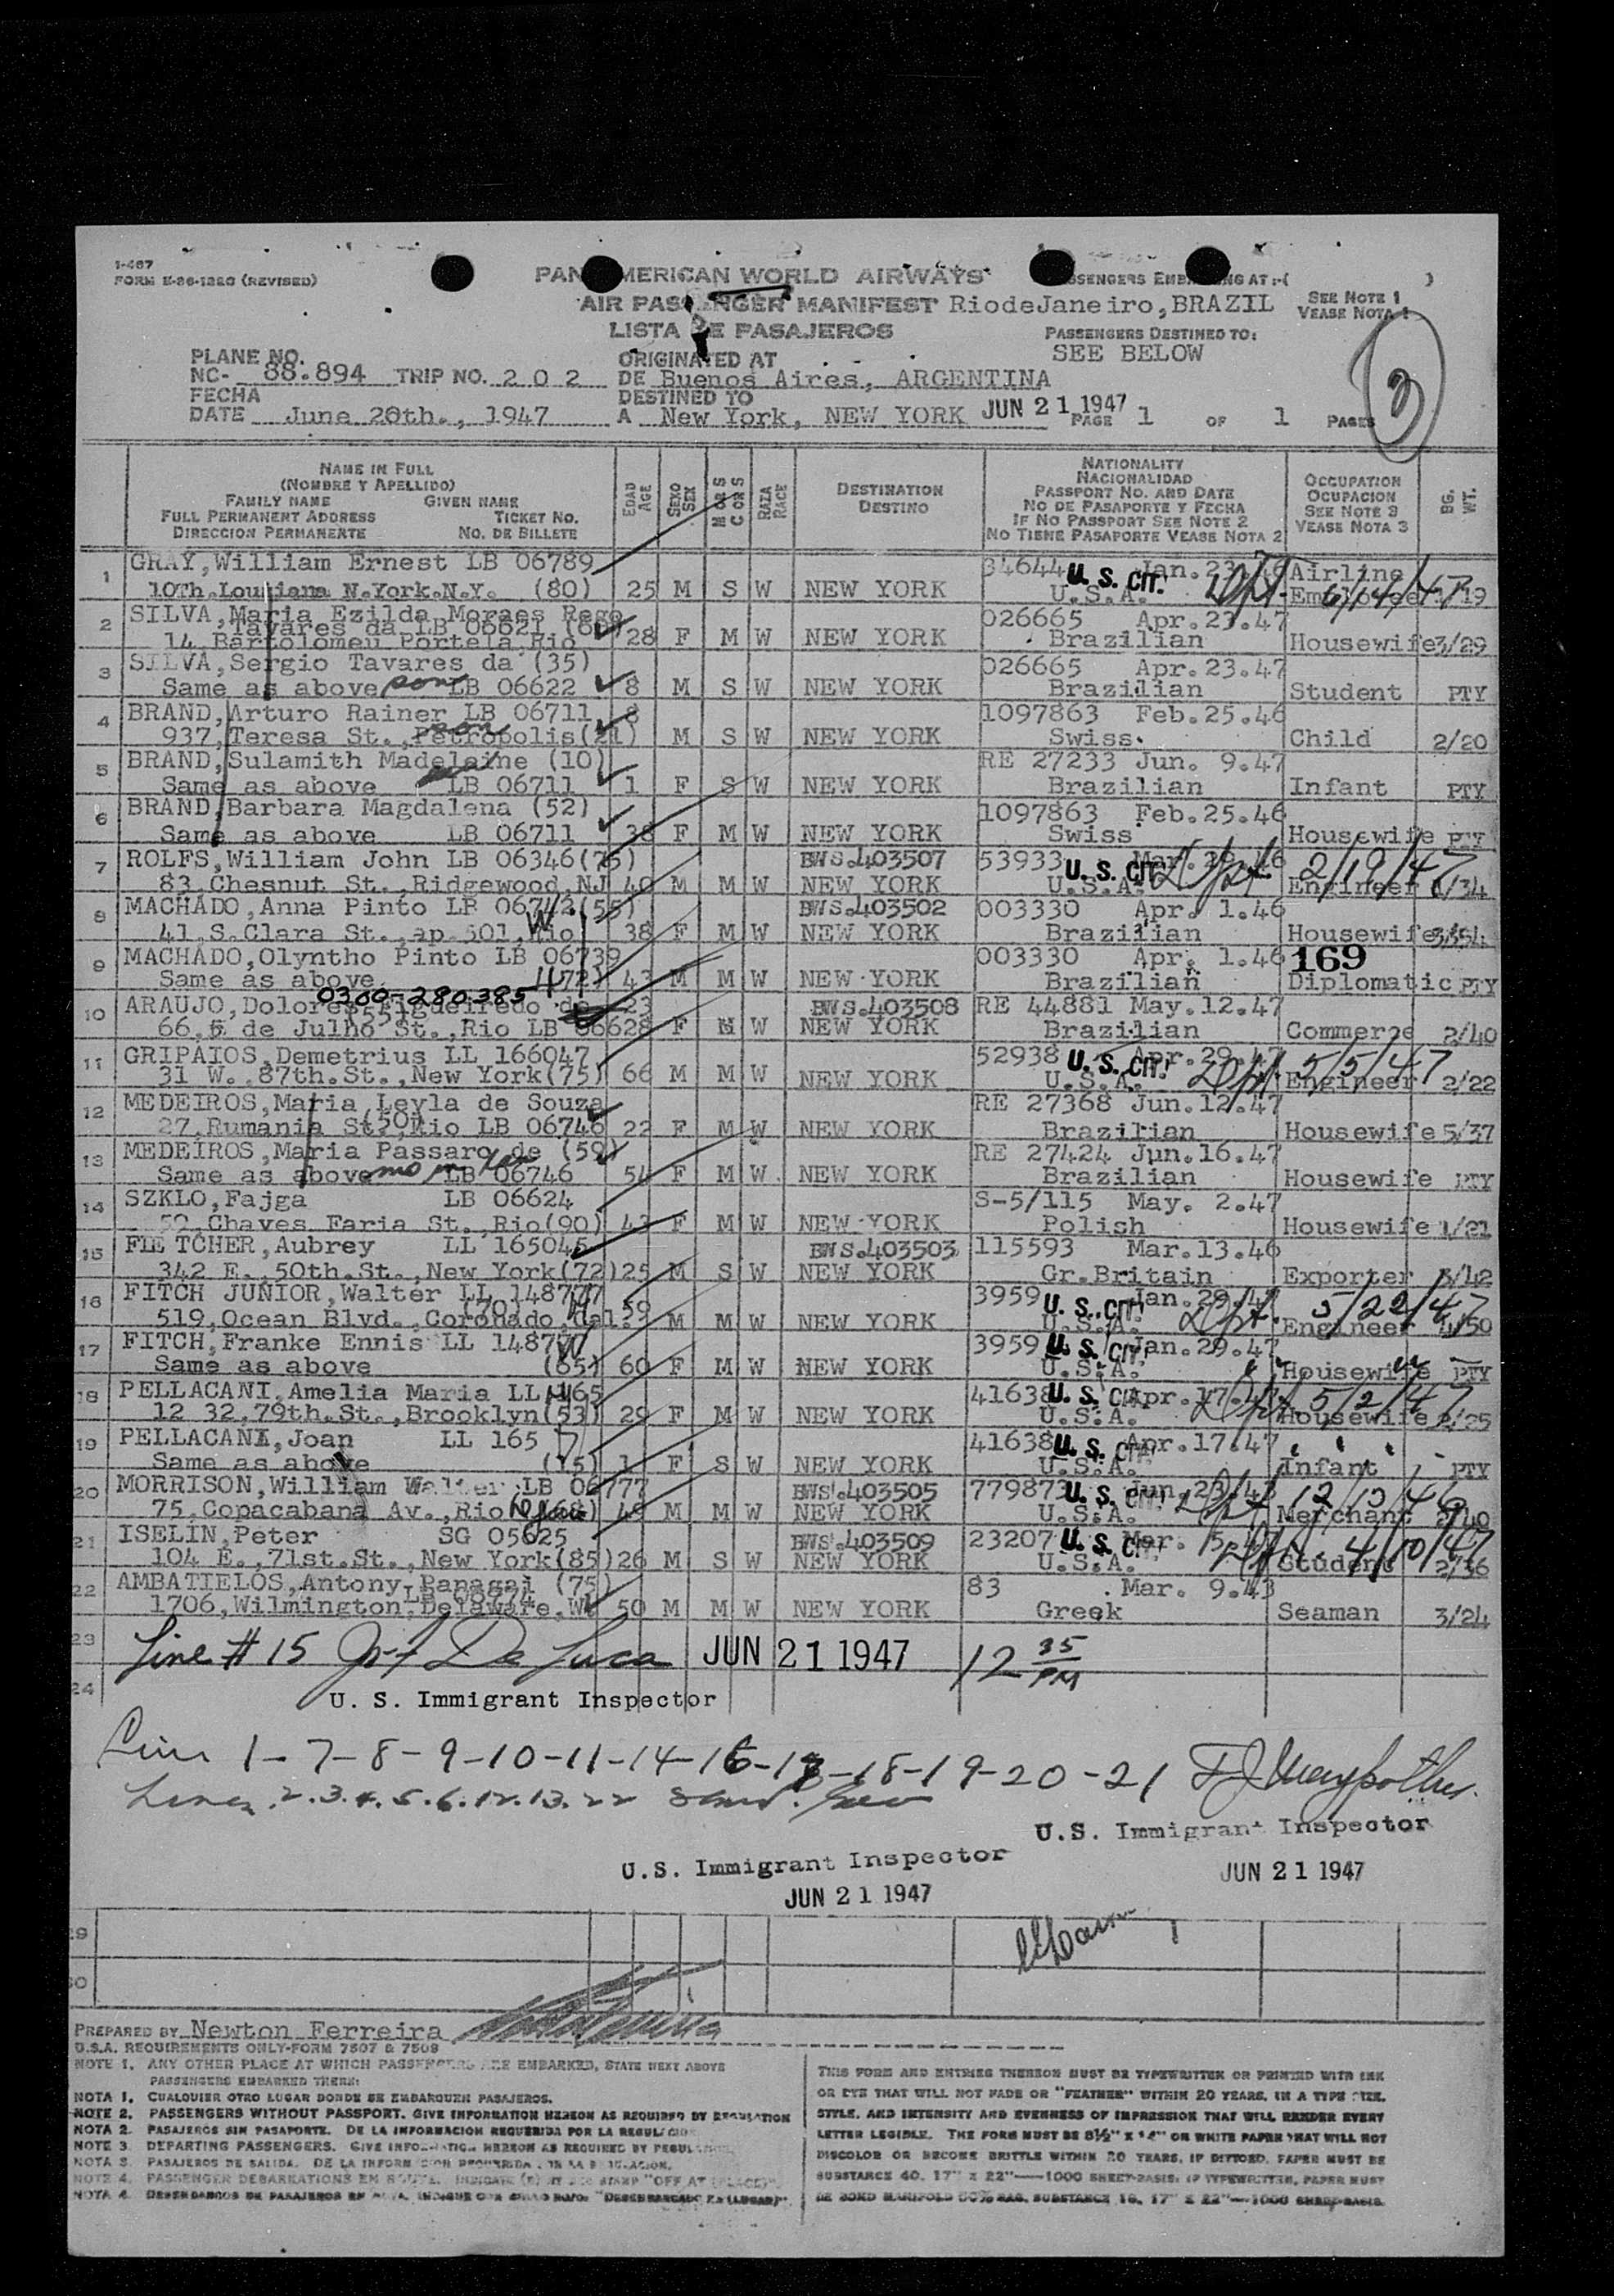 1-467
FORM E-86-1220 (REVISED)
PAN AMERICAN WORLD AIRWAYS
PASSENGERS EMBARKING AT :-( )
AIR PASSENGER MANIFEST RiodeJaneiro, BRAZIL
SEE NOTE 1
VEASE NOTA 1
LISTA DE PASAJEROS
PASSENGERS DESTINED TO:
SEE BELOW
3
PLANE NO.
NC- 88.894 TRIP NO. 2 0 2
ORIGINATED AT
DE Buenos Aires, ARGENTINA
FECHA
DATE June 20th., 1947
DESTINED TO
A New York, NEW YORK JUN 21 1947 PAGE 1 OF 1 PAGES
NAME IN FULL
(NOMBRE Y APELLIDO)
FAMILY NAME GIVEN NAME
FULL PERMANENT ADDRESS TICKET NO.
DIRECCION PERMANENTE NO. DE BILLETE
EDAD AGE
SEXO SEX
M OR S C OR S
RAZA RACE
DESTINATION
DESTINO
NATIONALITY
NACIONALIDAD
PASSPORT NO. AND DATE
NO DE PASAPORTE Y FECHA
IF NO PASSPORT SEE NOTE 2
NO TIENE PASAPORTE VEASE NOTA 2
OCCUPATION
OCUPACION
SEE NOTE 3
VEASE NOTA 3
BG. WT.
1 GRAY, William Ernest LB 06789 34644 U.S. CIT. Jan.23. Airline
10Th.Louisiana N.York.N.Y. (80) 25 M S W NEW YORK U.S.A. Dpt. Employee 6/14/47 19
2 SILVA, Maria Ezilda Moraes Rego 026665 Apr.23.47
Tavares da LB 06621 (60)
14 Bartolomeu Portela, Rio 28 F M W NEW YORK Brazilian Housewife 3/29
3 SILVA, Sergio Tavares da (35) 026665 Apr.23.47
Same as above son LB 06622 8 M S W NEW YORK Brazilian Student PTY
4 BRAND, Arturo Rainer LB 06711 8 1097863 Feb.25.46
937, Teresa St., Petropolis son M S W NEW YORK Swiss Child 2/20
5 BRAND, Sulamith Madelaine (10) RE 27233 Jun. 9.47
Same as above LB 06711 1 F S W NEW YORK Brazilian Infant PTY
6 BRAND, Barbara Magdalena (52) 1097863 Feb.25.46
Same as above LB 06711 38 F M W NEW YORK Swiss Housewife PTY
7 ROLFS, William John LB 06346(75) BWS.403507 53933 U.S. CIT. Mar.29.46 2/19/47
83, Chesnut St., Ridgewood, NJ 40 M M W NEW YORK U.S.A. Dpt. Engineer 1/34
8 MACHADO, Anna Pinto LB 06742(55) BWS.403502 003330 Apr. 1.46
41, S.Clara St., ap 501, Rio 38 F M W NEW YORK Brazilian Housewife
9 MACHADO, Olyntho Pinto LB 06739 003330 Apr. 1.46 169
Same as above (72) 43 M M W NEW YORK Brazilian Diplomatic PTY
0300-280385
10 ARAUJO, Dolores Figueiredo de 23 BWS.403508 RE 44881 May.12.47
66, 5 de Julho St., Rio LB 06628 F M W NEW YORK Brazilian Commerce 2/40
11 GRIPAIOS, Demetrius LL 166047 52938 U.S. CIT. Apr.29.47 5/5/47
31 W. 87th.St., New York(75) 66 M M W NEW YORK U.S.A. Dpt. Engineer 2/22
12 MEDEIROS, Maria Leyla de Souza RE 27368 Jun.12.47
(50)
27, Rumania St., Rio LB 06746 22 F M W NEW YORK Brazilian Housewife 5/37
13 MEDEIROS, Maria Passaro de (59) RE 27424 Jun.16.47
Same as above mother LB 06746 54 F M W NEW YORK Brazilian Housewife PTY
14 SZKLO, Fajga LB 06624 S-5/115 May. 2.47
52, Chaves Faria St., Rio(90) 43 F M W NEW YORK Polish Housewife 1/21
15 FLETCHER, Aubrey LL 165045 BWS.403503 115593 Mar.13.46
342 E. 50th.St., New York(72) 25 M S W NEW YORK Gr.Britain Exporter 3/42
16 FITCH JUNIOR, Walter LL 148777 3959 U.S. CIT. Jan.29.47 5/22/47
(70) 59
519, Ocean Blvd., Coronado, Cal. M M W NEW YORK U.S.A. Dpt. Engineer 4/50
17 FITCH, Franke Ennis LL 148777 3959 U.S. CIT. Jan.29.47
Same as above (65) 60 F M W NEW YORK U.S.A. " " Housewife " PTY
18 PELLACANI, Amelia Maria LL 165 41638 U.S. CIT. Apr.17.47 5/2/47
12 32, 79th.St., Brooklyn(53) 29 F M W NEW YORK U.S.A. Dpt. Housewife 2/25
19 PELLACANI, Joan LL 165 41638 U.S. CIT. Apr.17.47
Same as above (15) 1 F S W NEW YORK U.S.A. Infant PTY
20 MORRISON, William Walter LB 06777 BWS.403505 779873 U.S. CIT. Jun.23/43 12/13/46
75, Copacabana Av., Rio (168) 48 M M W NEW YORK U.S.A. Dpt Merchant 2/40
21 ISELIN, Peter SG 05625 BWS.403509 23207 U.S. CIT. Mar. 15. 4/10/47
104 E., 71st.St., New York(85) 26 M S W NEW YORK U.S.A. Dpt. Student 2/36
22 AMBATIELOS, Antony Panagai (75) 83 Mar. 9.43
1706, Wilmington, Delaware, W 50 M M W NEW YORK Greek Seaman 3/24
23 Line # 15 De Luca JUN 21 1947 12 35 PM
24 U. S. Immigrant Inspector
Line 1-7-8-9-10-11-14-16-17-18-19-20-21
Lines 2.3.4.5.6.12.13.22
U.S. Immigrant Inspector
U.S. Immigrant Inspector
JUN 21 1947
JUN 21 1947
29
30
PREPARED BY Newton Ferreira
U.S.A. REQUIREMENTS ONLY-FORM 7507 & 7508
NOTE 1. ANY OTHER PLACE AT WHICH PASSENGERS ARE EMBARKED, STATE NEXT ABOVE
PASSENGERS EMBARKED THERE:
NOTA 1. CUALQUIER OTRO LUGAR DONDE SE EMBARQUEN PASAJEROS.
NOTE 2. PASSENGERS WITHOUT PASSPORT. GIVE INFORMATION HEREON AS REQUIRED BY REGULATION
NOTA 2. PASAJEROS SIN PASAPORTE. DE LA INFORMACION REQUERIDA POR LA REGULACION
NOTE 3. DEPARTING PASSENGERS. GIVE INFORMATION HEREON AS REQUIRED BY REGULATION
NOTA 3. PASAJEROS DE SALIDA. DE LA INFORMACION REQUERIDA
NOTE 4. PASSENGER DEBARKATIONS EN ROUTE. INDICATE "OFF AT (PLACE)".
NOTA 4. DESEMBARCOS DE PASAJEROS EN RUTA, INDIQUE CON "DESEMBARCADO EN (LUGAR)".
THIS FORM AND ENTRIES THEREON MUST BE TYPEWRITTEN OR PRINTED WITH INK
OR DYE THAT WILL NOT FADE OR "FEATHER" WITHIN 20 YEARS, IN A TYPE SIZE,
STYLE, AND INTENSITY AND EVENNESS OF IMPRESSION THAT WILL RENDER EVERY
LETTER LEGIBLE. THE FORM MUST BE 8½" X 14" ON WHITE PAPER THAT WILL NOT
DISCOLOR OR BECOME BRITTLE WITHIN 20 YEARS. IF DITTOED, PAPER MUST BE
SUBSTANCE 40, 17" X 22"—1000 SHEET-BASIS; IF TYPEWRITTEN, PAPER MUST
BE BOND MANIFOLD 50% RAG, SUBSTANCE 16, 17" X 22"—1000 SHEET-BASIS.